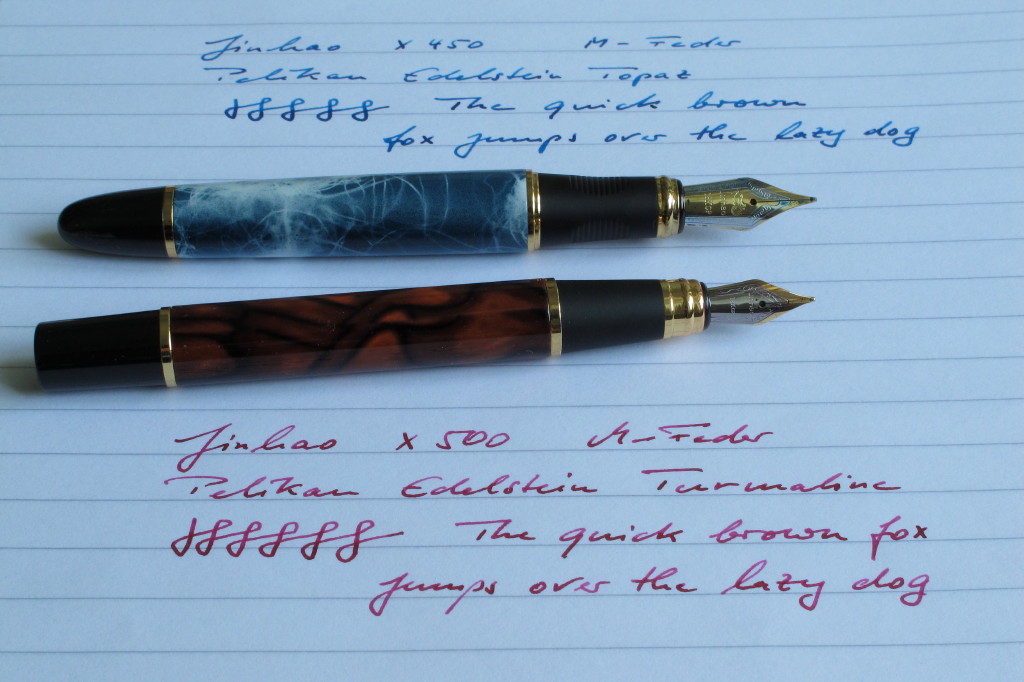 Jinhao x 450 M-Feder
Pelikan Edelstein Topaz
The quick brown
fox jumps over the lazy dog
Jinhao x 500 M-Feder
Pelikan Edelstein Turmaline
The quick brown fox
jumps over the lazy dog